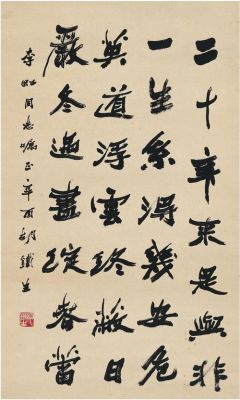 二十年来是與非
一生系得幾安危
莫道浮雲終蔽日
嚴冬過盡綻春蕾
李虹同志嘱正辛酉胡鐵生